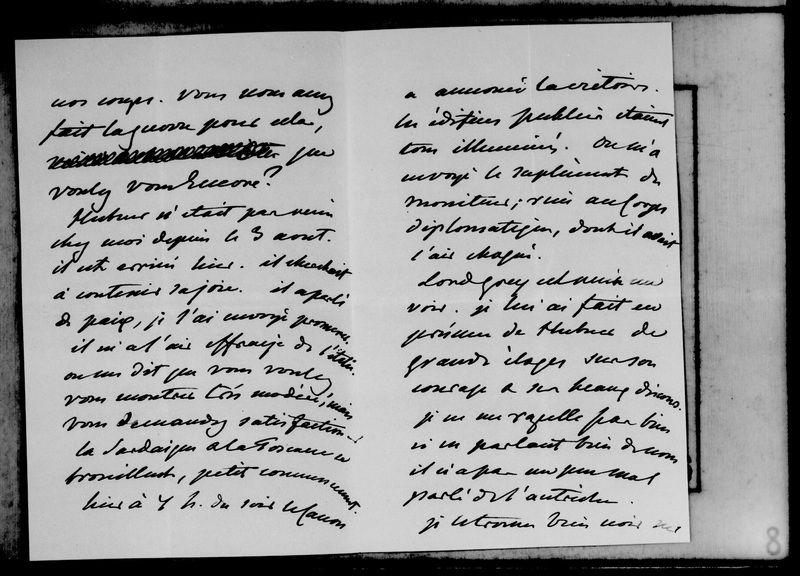 nos coups. Vous nous avez
fait la guerre pour cela,
que
voulez vous Encore?
Hubner n'etait pas venu
chez moi depuis le 3 aout.
il est arrivé hier. il cherchait
à contenir sa joie. il a parlé
de paix, je l'ai envoyé promener.
il m'a l'air effrayé de l'Italie.
on me dit que vous voulez
vous montrer très modéré, mais
vous demandez satisfaction.
la Sardaigne et la Toscane se
brouillent, petit commencement.
hier à 4 h. du soir le Canon
a annoncé la victoire.
les édifices publics etaient
tous illuminés. On m'a
envoyé le suplément du
moniteur, rien au Corps
diplomatique, dont il avait
l'air chagriné.
Lord Grey est venu me
voir. je lui ai fait en
présence de Hubner de
grands éloges sur son
courage et ses beaux discours.
je ne me rapelle pas bien
si en parlant bien de nous
il n'a pas un peu mal
parlé de l'autriche.
je le trouve bien noir
8